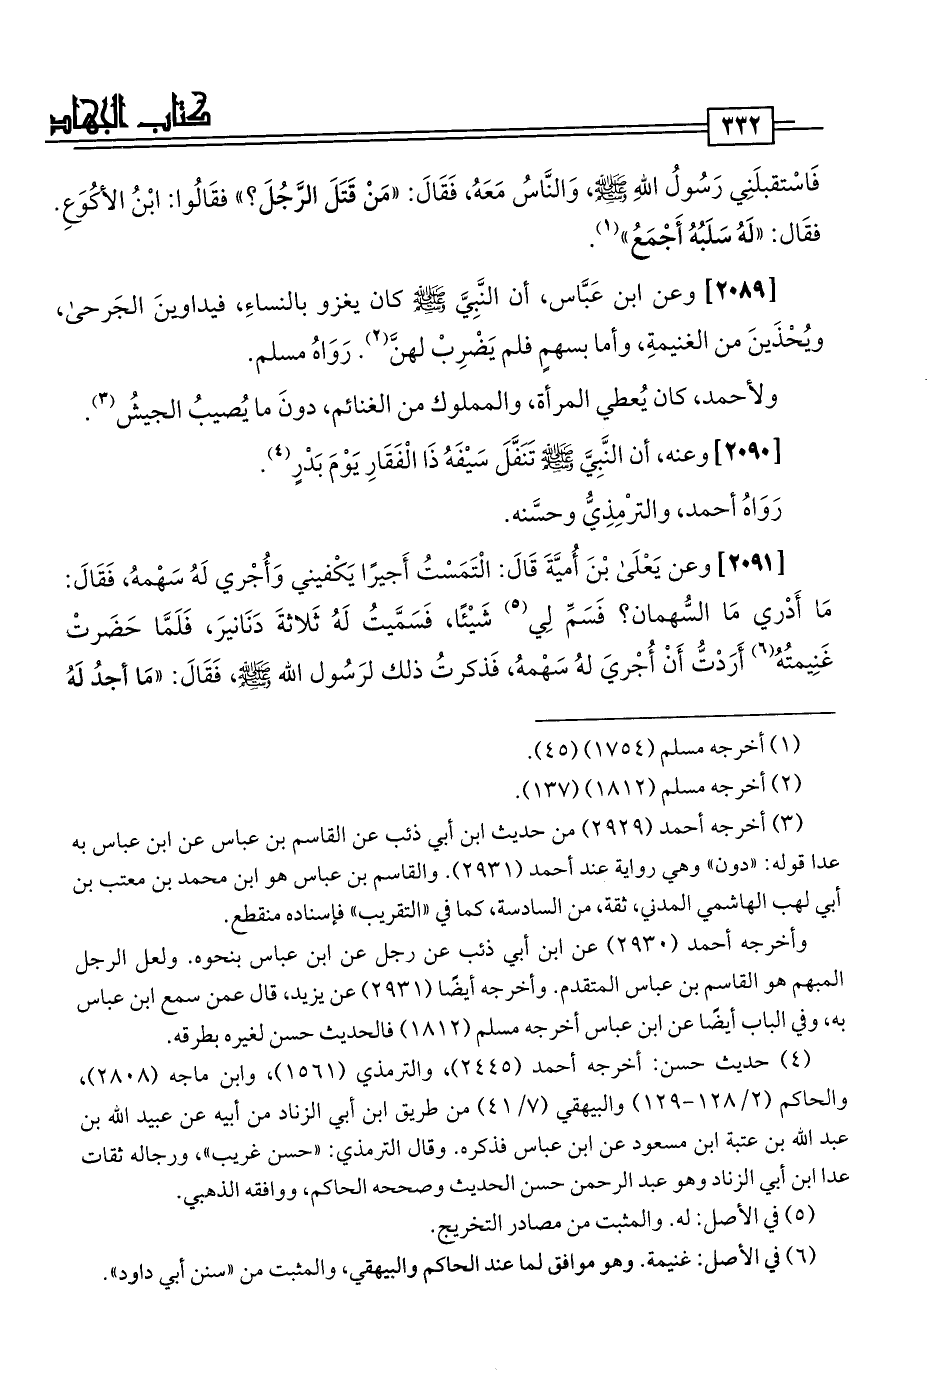 كتاب الجهاد
٣٣٢
فَاسْتقبلَنِي رَسُولُ اللهِ ﷺ، وَالنَّاسُ مَعَهُ، فَقَالَ: «مَنْ قَتَلَ الرَّجُلَ؟» فقَالُوا: ابْنُ الأكْوَعِ.
فقَال: «لَهُ سَلَبُهُ أَجْمَعُ»(١).
[٢٠٨٩] وعن ابن عَبَّاس، أن النَّبِيَّ ﷺ كان يغزو بالنساءِ، فيداوينَ الجَرحىٰ،
ويُحْذَينَ من الغنيمةِ، وأما بسهمٍ فلم يَضْرِبْ لهنَّ(٢). رَوَاهُ مسلم.
ولأحمد، كان يُعطي المرأة، والمملوك من الغنائم، دونَ ما يُصيبُ الجيشُ(٣).
[٢٠٩٠] وعنه، أن النَّبِيَّ ﷺ تَنَفَّلَ سَيْفَهُ ذَا الْفَقَارِ يَوْمَ بَدْرٍ(٤).
رَوَاهُ أحمد، والترْمِذِيُّ وحسَّنه.
[٢٠٩١] وعن يَعْلَىٰ بْنَ أُميَّةَ قَالَ: الْتَمَسْتُ أجيرًا يَكْفيني وَأُجْري لَهُ سَهْمهُ، فَقَالَ:
مَا أَدْرِي مَا السُّهمان؟ فَسَمِّ لِي(٥) شَيْئًا، فَسَمَّيتُ لَهُ ثَلاثةَ دَنَانيرَ، فَلَمَّا حَضَرتْ
غَنِيمتُهُ(٦) أَرَدْتُّ أَنْ أُجْرِيَ لهُ سَهْمهُ، فَذكرتُ ذلك لرَسُول الله ﷺ، فَقَالَ: «مَا أجدُ لَهُ
(١) أخرجه مسلم (١٧٥٤) (٤٥).
(٢) أخرجه مسلم (١٨١٢) (١٣٧).
(٣) أخرجه أحمد (٢٩٢٩) من حديث ابن أبي ذئب عن القاسم بن عباس عن ابن عباس به
عدا قوله: «دون» وهي رواية عند أحمد (٢٩٣١). والقاسم بن عباس هو ابن محمد بن معتب بن
أبي لهب الهاشمي المدني، ثقة، من السادسة، كما في «التقريب» فإسناده منقطع.
وأخرجه أحمد (٢٩٣٠) عن ابن أبي ذئب عن رجل عن ابن عباس بنحوه. ولعل الرجل
المبهم هو القاسم بن عباس المتقدم. وأخرجه أيضًا (٢٩٣١) عن يزيد، قال عمن سمع ابن عباس
به، وفي الباب أيضًا عن ابن عباس أخرجه مسلم (١٨١٢) فالحديث حسن لغيره بطرقه.
(٤) حديث حسن: أخرجه أحمد (٢٤٤٥)، والترمذي (١٥٦١)، وابن ماجه (٢٨٠٨)،
والحاكم (١٢٨/٢-١٢٩) والبيهقي (٤١/٧) من طريق ابن أبي الزناد من أبيه عن عبيد الله بن
عبد الله بن عتبة ابن مسعود عن ابن عباس فذكره. وقال الترمذي: «حسن غريب»، ورجاله ثقات
عدا ابن أبي الزناد وهو عبد الرحمن حسن الحديث وصححه الحاكم، ووافقه الذهبي.
(٥) في الأصل: له. والمثبت من مصادر التخريج.
(٦) في الأصل: غنيمة. وهو موافق لما عند الحاكم والبيهقي، والمثبت من «سنن أبي داود».